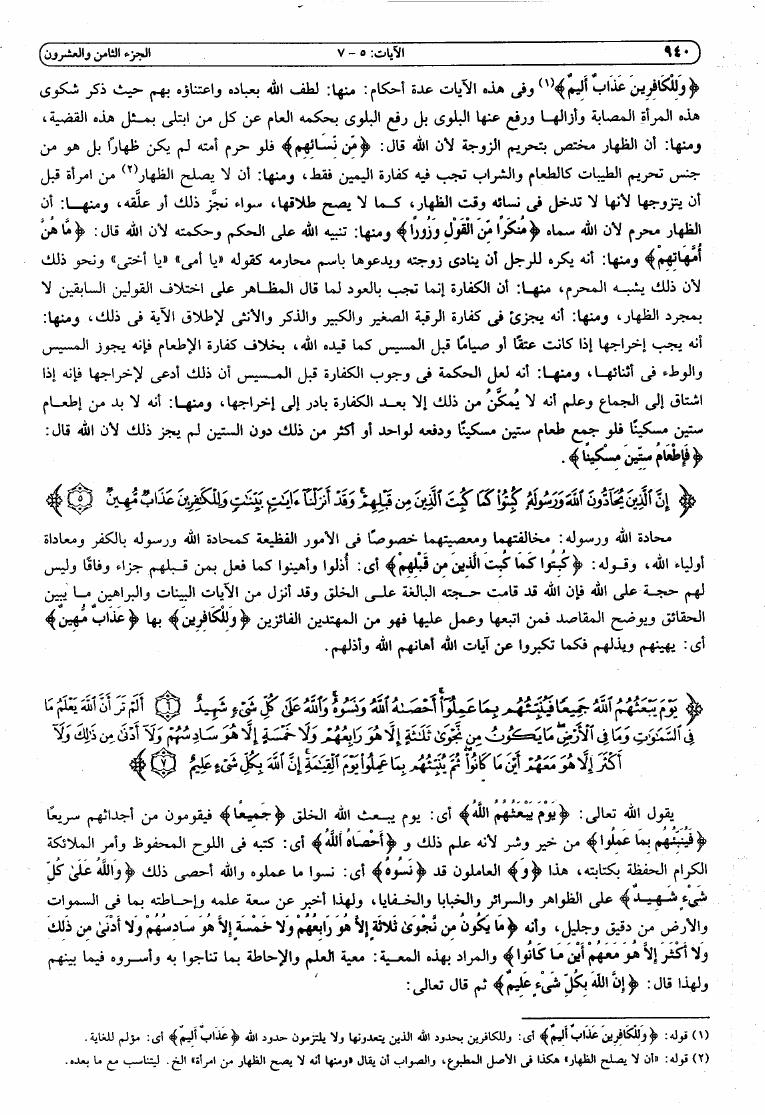 ٩٤٠ الآيات: ٥ - ٧ الجزء الثامن والعشرون
﴿وَلِلْكَافِرِينَ عَذَابٌ أَلِيمٌ﴾(١) وفى هذه الآيات عدة أحكام: منها: لطف الله بعباده واعتناؤه بهم حيث ذكر شكوى
هذه المرأة المصابة وأزالهـا ورفع عنها البلوى بل رفع البلوى بحكمه العام عن كل من ابتلى بمـثل هذه القضية،
ومنها: أن الظهار مختص بتحريم الزوجة لأن الله قال: ﴿مِّن نِّسَائِهِم﴾ فلو حرم أمته لم يكن ظهارًا بل هو من
جنس تحريم الطيبات كالطعام والشراب تجب فيه كفارة اليمين فقط، ومنها: أن لا يصلح الظهار(٢) من امرأة قبل
أن يتزوجها لأنها لا تدخل فى نسائه وقت الظهار، كـما لا يصح طلاقها، سواء نجَّز ذلك أو علَّقه، ومنهـا: أن
الظهار محرم لأن الله سماه ﴿مُنكَرًا مِّنَ الْقَوْلِ وَزُورًا﴾ ومنها: تنبيه الله على الحكم وحكمته لأن الله قال: ﴿مَّا هُنَّ
أُمَّهَاتِهِمْ﴾ ومنها: أنه يكره للرجل أن ينادى زوجته ويدعوها باسم محارمه كقوله «يا أمى» «يا أختى» ونحو ذلك
لأن ذلك يشبـه المحرم، منهـا: أن الكفارة إنما تجب بالعود لما قال المظـاهر على اختلاف القولين السابقين لا
بمجرد الظهار، ومنها: أنه يجزئ فى كفارة الرقبة الصغير والكبير والذكر والأنثى لإطلاق الآية فى ذلك، ومنها:
أنه يجب إخراجها إذا كانت عتقًا أو صيامًا قبل المسيس كما قيده الله، بخلاف كفارة الإطعام فإنه يجوز المسيس
والوطء فى أثنائهـا، ومنها: أنه لعل الحكمة فى وجوب الكفارة قبل المـسيس أن ذلك أدعى لإخراجها فإنه إذا
اشتاق إلى الجماع وعلم أنه لا يُمكَّنُ من ذلك إلا بعـد الكفارة بادر إلى إخراجها، ومنهـا: أنه لا بد من إطعـام
ستين مسكينًا فلو جمع طعام ستين مسكينًا ودفعه لواحد أو أكثر من ذلك دون الستين لم يجز ذلك لأن الله قال:
﴿فَإِطْعَامُ سِتِّينَ مِسْكِينًا﴾.
﴿إِنَّ الَّذِينَ يُحَادُّونَ اللَّهَ وَرَسُولَهُ كُبِتُوا كَمَا كُبِتَ الَّذِينَ مِن قَبْلِهِمْ وَقَدْ أَنزَلْنَا ءَايَاتٍ بَيِّنَاتٍ وَلِلْكَافِرِينَ عَذَابٌ مُّهِينٌ ٥﴾
محادة الله ورسوله: مخالفتهما ومعصيتهما خصوصًا فى الأمور الفظيعة كمحادة الله ورسوله بالكفر ومعاداة
أولياء الله، وقـوله: ﴿كُبِتُوا كَمَا كُبِتَ الَّذِينَ مِن قَبْلِهِمْ﴾ أى: أُذلوا وأهينوا كما فعل بمن قـبلهم جزاء وفاقًا وليس
لهم حجـة على الله فإن الله قد قامت حـجته البالغة علـى الخلق وقد أنزل من الآيات البينات والبراهين مـا يُبين
الحقائق ويوضح المقاصد فمن اتبعها وعمل عليها فهو من المهتدين الفائزين ﴿وَلِلْكَافِرِينَ﴾ بها ﴿عَذَابٌ مُّهِينٌ﴾
أى: يهينهم ويذلهم فكما تكبروا عن آيات الله أهانهم الله وأذلهم.
﴿يَوْمَ يَبْعَثُهُمُ اللَّهُ جَمِيعًا فَيُنَبِّئُهُم بِمَا عَمِلُوا أَحْصَاهُ اللَّهُ وَنَسُوهُ وَاللَّهُ عَلَىٰ كُلِّ شَىْءٍ شَهِيدٌ ٦ أَلَمْ تَرَ أَنَّ اللَّهَ يَعْلَمُ مَا
فِى السَّمَاوَاتِ وَمَا فِى الْأَرْضِ مَا يَكُونُ مِن نَّجْوَىٰ ثَلَاثَةٍ إِلَّا هُوَ رَابِعُهُمْ وَلَا خَمْسَةٍ إِلَّا هُوَ سَادِسُهُمْ وَلَا أَدْنَىٰ مِن ذَٰلِكَ وَلَا
أَكْثَرَ إِلَّا هُوَ مَعَهُمْ أَيْنَ مَا كَانُوا ثُمَّ يُنَبِّئُهُم بِمَا عَمِلُوا يَوْمَ الْقِيَامَةِ إِنَّ اللَّهَ بِكُلِّ شَىْءٍ عَلِيمٌ ٧﴾
يقول الله تعالى: ﴿يَوْمَ يَبْعَثُهُمُ اللَّهُ﴾ أى: يوم يبـعث الله الخلق ﴿جَمِيعًا﴾ فيقومون من أجداثهم سريعًا
﴿فَيُنَبِّئُهُم بِمَا عَمِلُوا﴾ من خير وشر لأنه علم ذلك و ﴿أَحْصَاهُ اللَّهُ﴾ أى: كتبه فى اللوح المحفوظ وأمر الملائكة
الكرام الحفظة بكتابته، هذا ﴿وَ﴾ العاملون قد ﴿نَسُوهُ﴾ أى: نسوا ما عملوه والله أحصى ذلك ﴿وَاللَّهُ عَلَىٰ كُلِّ
شَىْءٍ شَـهِيدٌ﴾ على الظواهر والسرائر والخبايا والخـفايا، ولهذا أخبر عن سعة علمه وإحـاطته بما فى السموات
والأرض من دقيق وجليل، وأنه ﴿مَا يَكُونُ مِن نَّجْوَىٰ ثَلاثَةٍ إِلاَّ هُوَ رَابِعُهُمْ وَلا خَمْسَةٍ إِلاَّ هُوَ سَادِسُهُمْ وَلا أَدْنَىٰ مِن ذَلِكَ
وَلا أَكْثَرَ إِلاَّ هُوَ مَعَهُمْ أَيْنَ مَا كَانُوا﴾ والمراد بهذه المعـية: معية العلم والإحاطة بما تناجوا به وأسـروه فيما بينهم
ولهذا قال: ﴿إِنَّ اللَّهَ بِكُلِّ شَىْءٍ عَلِيمٌ﴾ ثم قال تعالى:
(١) قوله: ﴿وَلِلْكَافِرِينَ عَذَابٌ أَلِيمٌ﴾ أى: وللكافرين بحدود الله الذين يتعدونها ولا يلتزمون حدود الله ﴿عَذَابٌ أَلِيمٌ﴾ أى: مؤلم للغاية.
(٢) قوله: «أن لا يصلح الظهار» هكذا فى الأصل المطبوع، والصواب أن يقال «ومنها أنه لا يصح الظهار من امرأة» الخ. ليتناسب مع ما بعده.